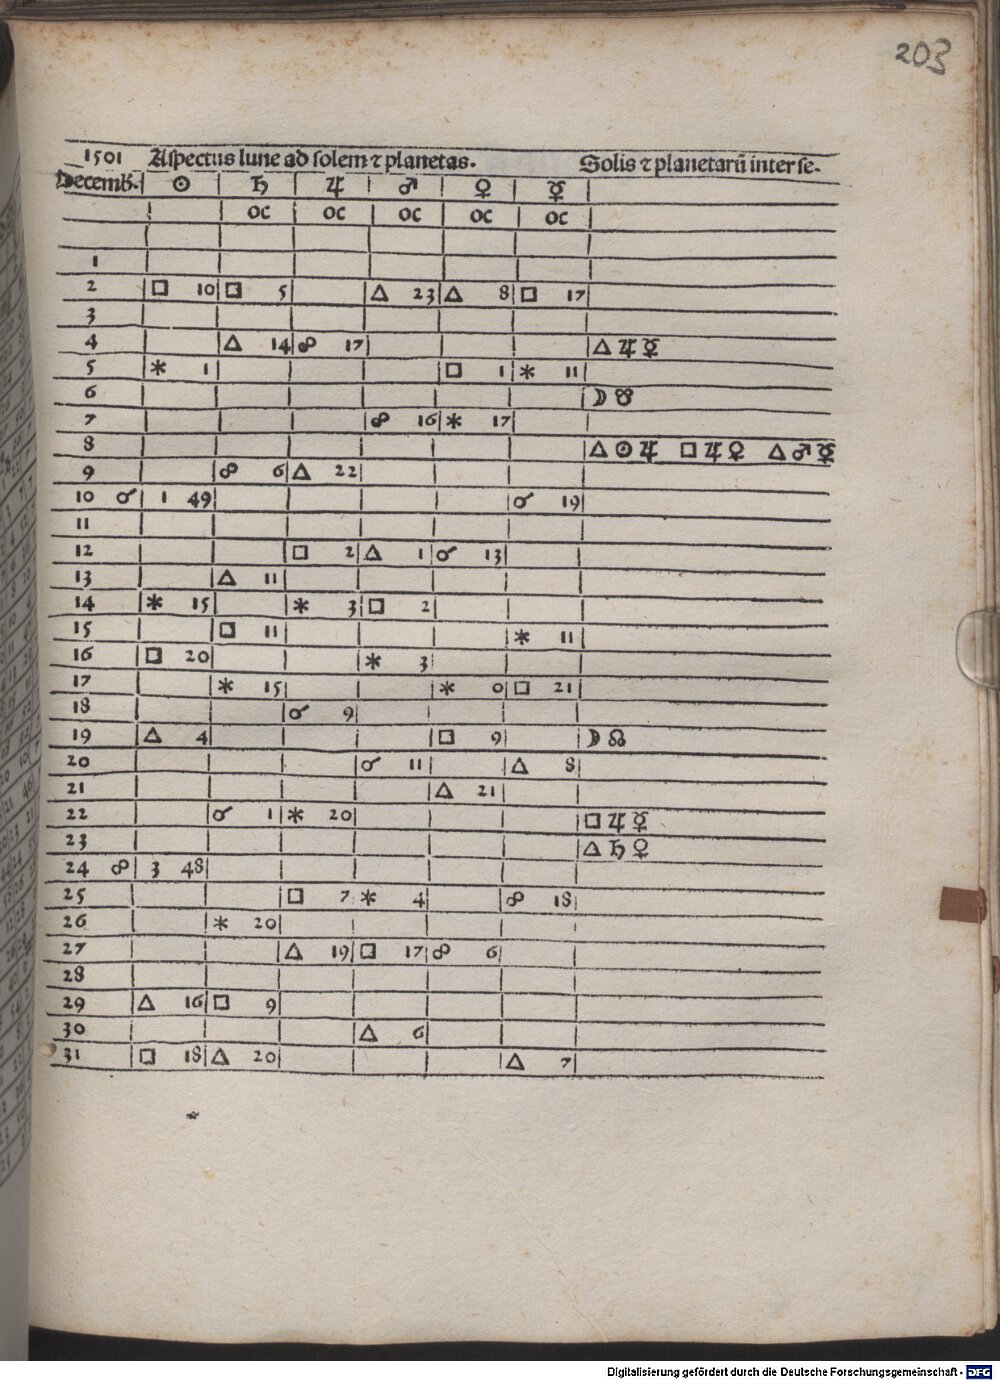 203
1501 Aspectus lune ad solem ⁊ planetas. Solis ⁊ planetarū inter se.
Decemb. ☉ ♄ ♃ ♂ ♀ ☿
oc oc oc oc oc
1
2 □ 10 □ 5 △ 23 △ 8 □ 17
3
4 △ 14 ☍ 17 △ ♃ ☿
5 ⚹ 1 □ 1 ⚹ 11
6 ☽ ☋
7 ☍ 16 ⚹ 17
8 △ ☉ ♃ □ ♃ ♀ △ ♂ ☿
9 ☍ 6 △ 22
10 ☌ 1 49 ☌ 19
11
12 □ 2 △ 1 ☌ 13
13 △ 11
14 ⚹ 15 ⚹ 3 □ 2
15 □ 11 ⚹ 11
16 □ 20 ⚹ 3
17 ⚹ 15 ⚹ 0 □ 21
18 ☌ 9
19 △ 4 □ 9 ☽ ☊
20 ☌ 11 △ 8
21 △ 21
22 ☌ 1 ⚹ 20 □ ♃ ☿
23 △ ♄ ♀
24 ☍ 3 48
25 □ 7 ⚹ 4 ☍ 18
26 ⚹ 20
27 △ 19 □ 17 ☍ 6
28
29 △ 16 □ 9
30 △ 6
31 □ 18 △ 20 △ 7
Digitalisierung gefördert durch die Deutsche Forschungsgemeinschaft - DFG